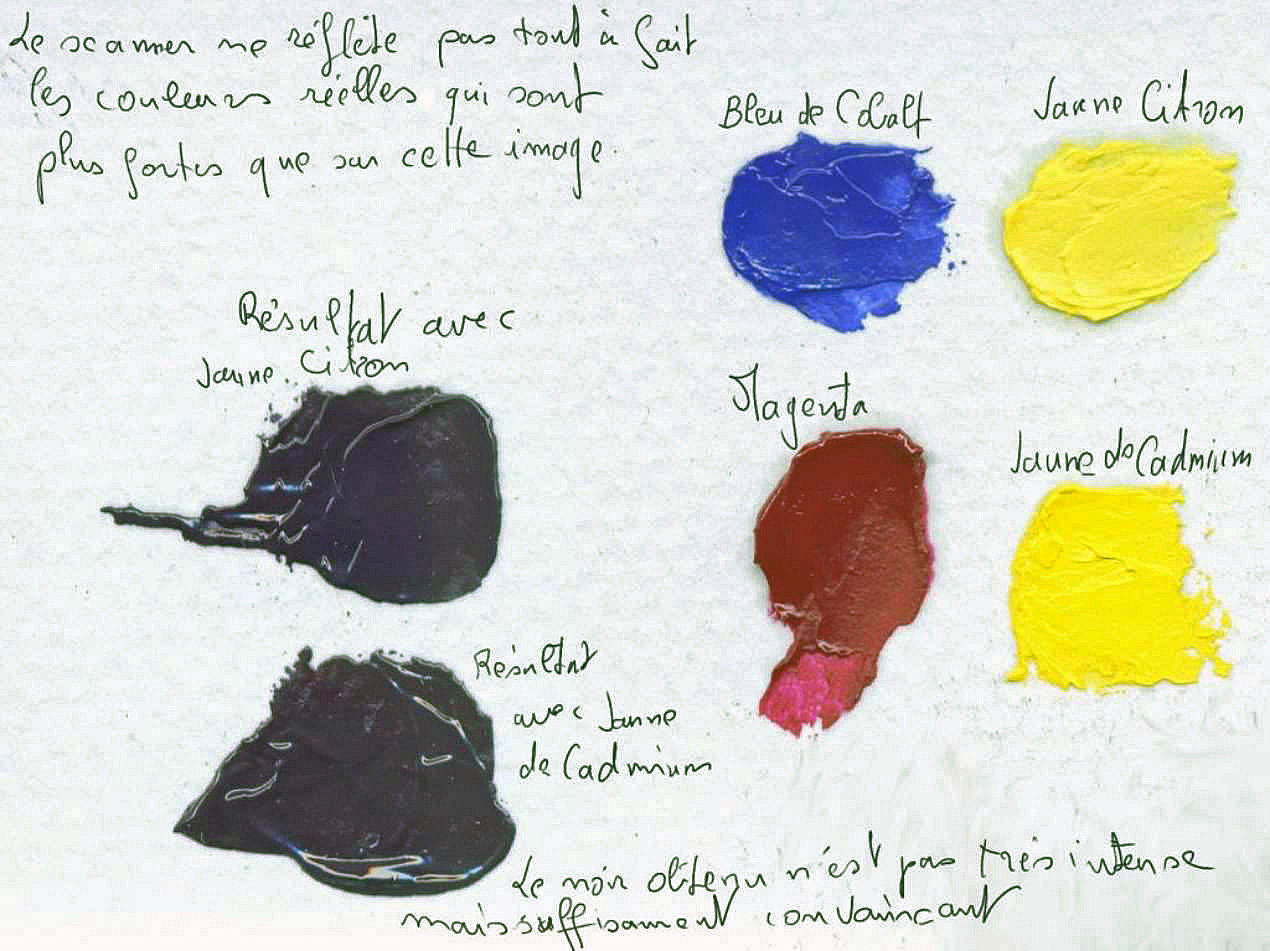 Le scanner ne réflète pas tout à fait
les couleurs réelles qui sont
plus fortes que sur cette image.
Bleu de Cobalt
Jaune Citron
Résultat avec
Jaune Citron
Magenta
Jaune de Cadmium
Résultat
avec Jaune
de Cadmium
Le noir obtenu n'est pas très intense
mais suffisament convaincant